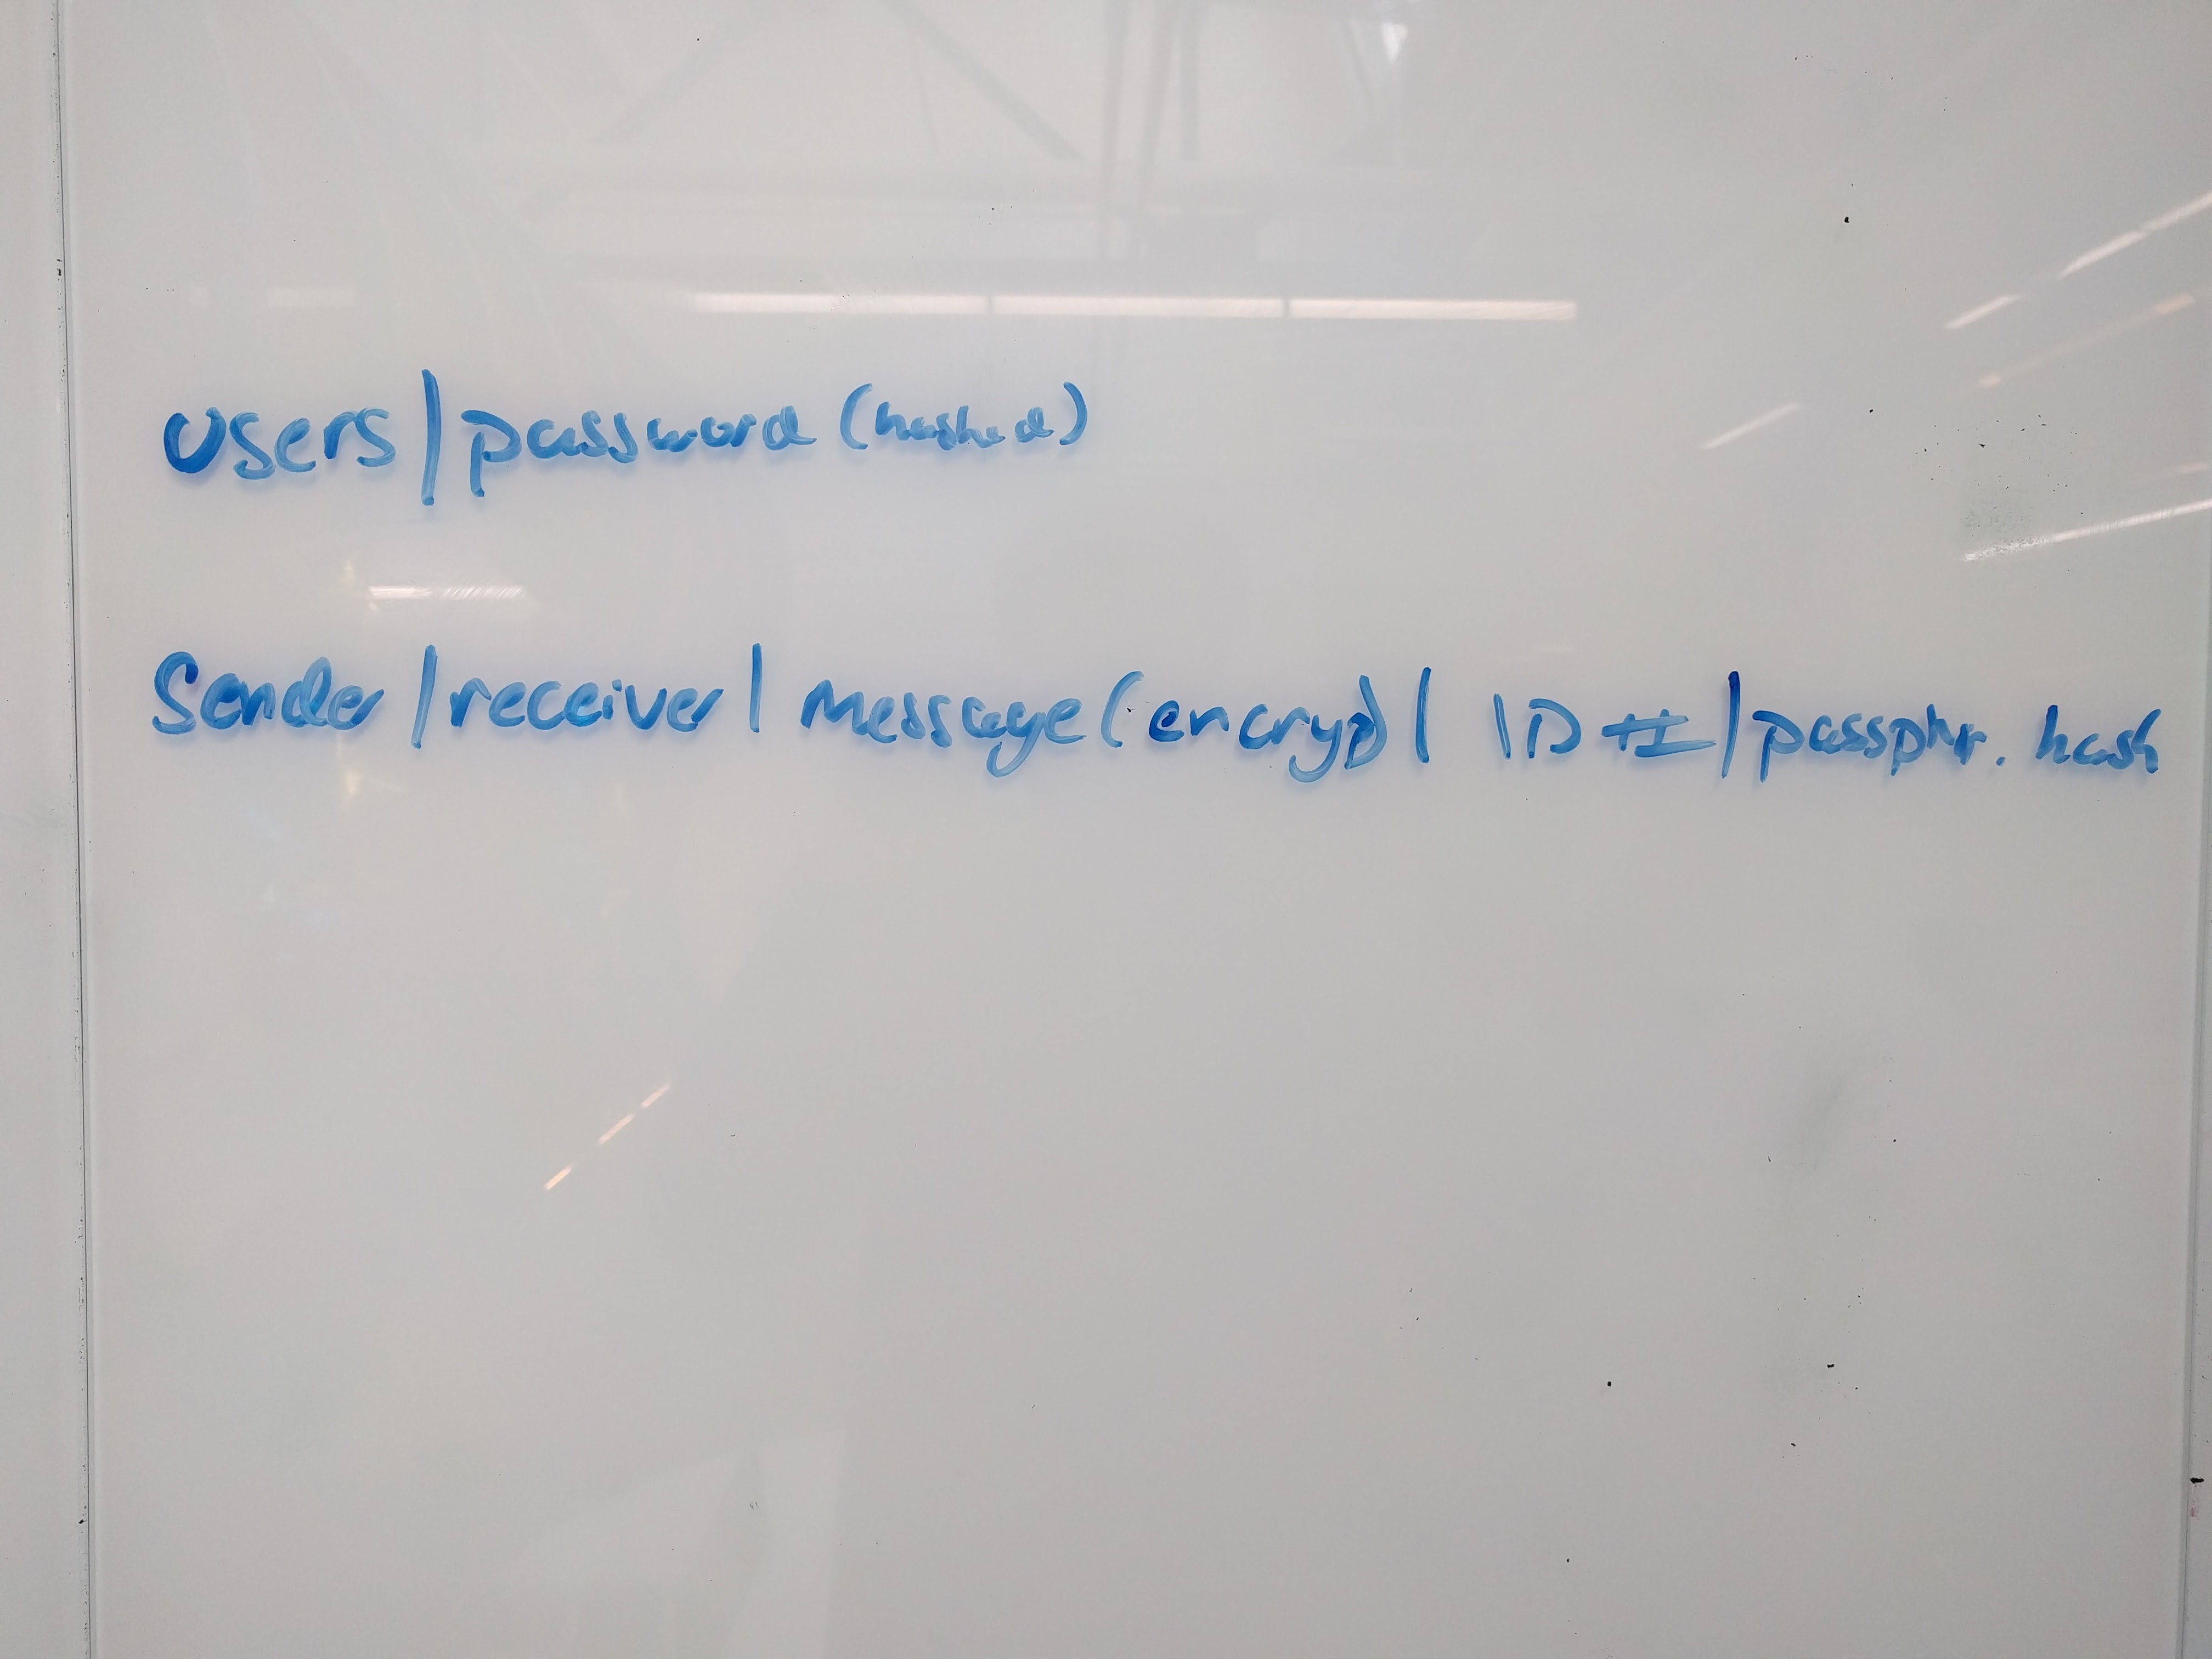 Users | password (hashed)
Sender | receiver | message (encryp) | ID # | passphr. hash